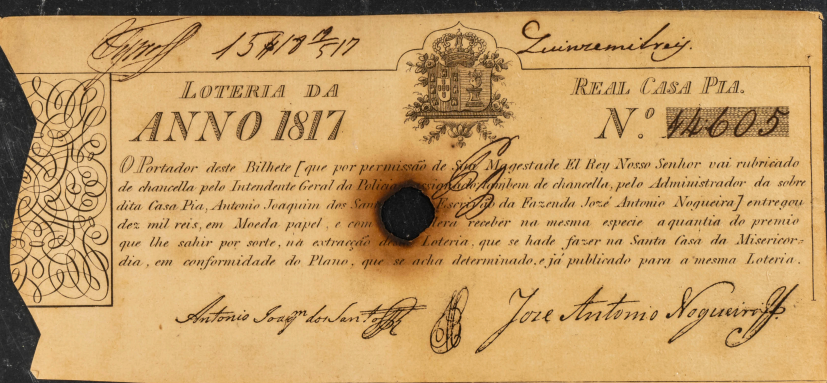 15$18 2/5 17 Quinze mil reis.
LOTERIA DA REAL CASA PIA.
ANNO 1817 N.º 14605
O Portador deste Bilhete [que por permissão de Sua Magestade El Rey Nosso Senhor vai rubricado
de chancella pelo Intendente Geral da Policia tambem de chancella, pelo Administrador da sobre
dita Casa Pia, Antonio Joaquim dos San Escrivão da Fazenda Jozé Antonio Nogueira] entregou
dez mil reis, em Moeda papel, e com receber na mesma especie a quantia do premio
que lhe sahir por sorte, na extracção des Loteria, que se hade fazer na Santa Casa da Misericor-
dia, em conformidade do Plano, que se acha determinado, e já publicado para a mesma Loteria.
Antonio Joaqm dos Santos Joze Antonio Nogueira